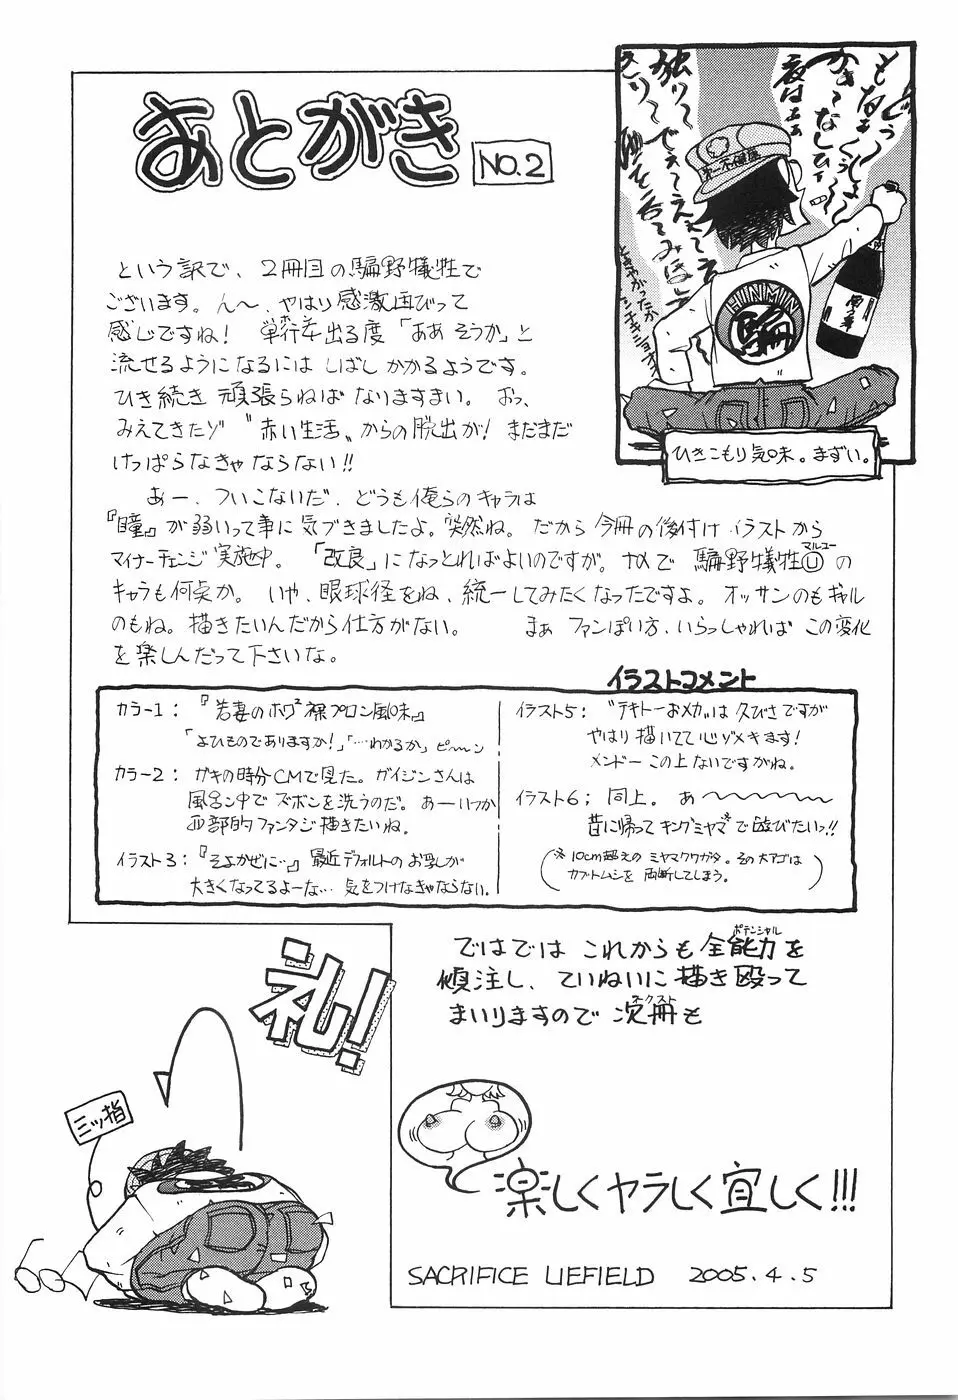 あとがき NO.2
という訳で、2冊目の騙野犠牲で
ございます。ん～、やはり感激且びって
感じですね！ 単行本出る度「ああ そうか」と
流せるようになるには しばし かかるようです。
ひき続き 頑張らねば なりますまい。 おっ、
みえてきたゾ “赤い生活„からの脱出が！ まだまだ
けっぱらなきゃならない!!
あー、ついこないだ、どうも俺らのキャラは
『瞳』が弱いって事に気づきましたよ。突然ね。だから今冊の後付けイラストから
マイナーチェンジ実施中。「改良」になっとればよいのですが。なんで 騙野犠牲Ⓤの
マルユー
キャラも何点か。 いや、眼球径をね、統一してみたくなったですよ。オッサンのもギャル
のもね。描きたいんだから仕方がない。 まぁ ファンぽい方、いらっしゃれば この変化
を楽しんだって下さいな。
イラストコメント
カラー1： 『若妻のホワ² 裸プロン風味』
「よひものでありますか！」「…わかるか」ピーン
カラー2： ガキの時分CMで見た。ガイジンさんは
風呂ン中で ズボンを洗うのだ。あーいつか
西部的ファンタジ描きたいね。
イラスト3：『そよかぜに…』最近デフォルトのお乳が
大きくなってるよーな… 気をつけなきゃならない。
イラスト5： “テキトーおメカ„は 久びさですが
やはり 描いてて心ゾメキます！
メンドー この上ないですがね。
イラスト6； 同上。 あ～～～～～
昔に帰って キングミヤマ※で遊びたいっ!!
（※10cm超えの ミヤマクワガタ。その大アゴは
カブトムシを 両断してしまう。）
ひきこもり気味。まずい。
HINMIN
騙
礼！
三ッ指
ではでは これからも 全能力を
ポテンシャル
傾注し、ていねいに描き殴って
まいりますので 次冊も
ネクスト
楽しくヤラしく宜しく!!!
SACRIFICE LIEFIELD 2005.4.5